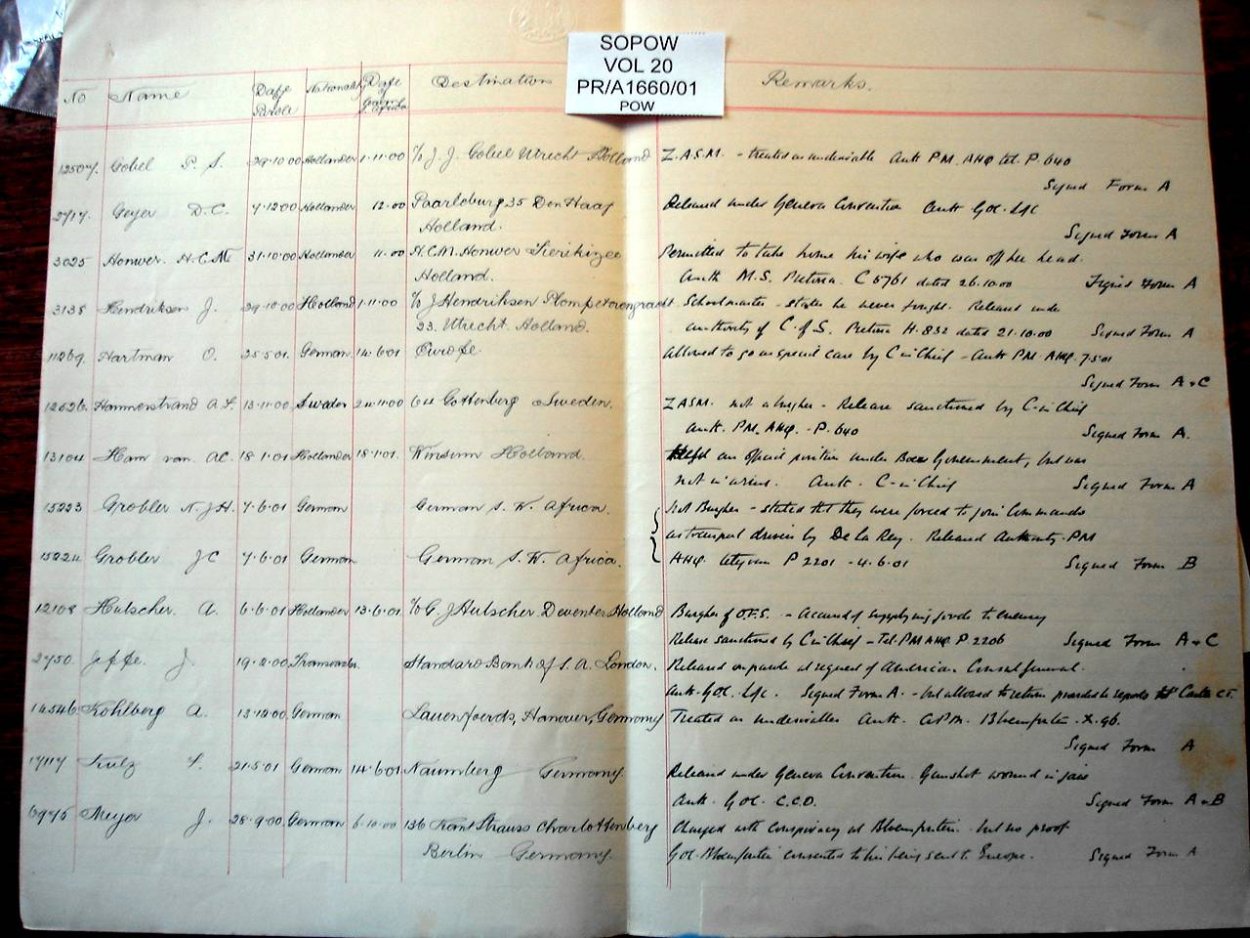 SOPOW
VOL 20
PR/A1660/01
POW
No Name Date Parole Nationality Date of Destination Remarks.
12507. Gobel P. S. 29.10.00 Hollander 1.11.00 c/o J. J. Gobel Utrecht Holland Z.A.S.M. - treated as undesirable Auth PM. AHQ tel. P. 640
Signed Form A
2717. Geyer D.C. 7.12.00 Hollander 12.00 35 Den Haag Released under Geneva Convention Auth GOC. L of C
Holland. Signed Form A
3025 Honwer. H.C.M 31.10.00 Hollander 11.00 H.C.M. Honwer Zierikzee Permitted to take home his wife who was off her head.
Holland. Auth M.S. Pretoria. C 5761 dated 26.10.00 Signed Form A
3135 Hendriksen J. 29.10.00 Holland 1.11.00 c/o J Hendriksen Plompetorengracht Schoolmaster - states he never fought. Released under
23. Utrecht. Holland. authority of C. of S. Pretoria H. 832 dated 21.10.00 Signed Form A
11269. Hartman O. 25.5.01. German 14.6.01 Europe. allowed to go as special case by C in Chief - Auth PM. AHQ. 7.5.01
Signed Form A & C
12526. Hammerstrand A. F. 13.11.00 Sweden 24.11.00 Gottenberg Sweden. Z ASM. not a burgher - Release sanctioned by C-in-Chief
Auth. PM. AHQ. - P. 640 Signed Form A.
13104 Ham van A.C. 18.1.01 Hollander 18.1.01. Winsum Holland. Held an official position under Boer Government, but was
not in arms. Auth. C-in-Chief Signed Form A
15223 Grobler N. J. H. 7.6.01 German German S. W. Africa. Not Burgher - stated tht they were forced to join Commando
as transport drivers by De La Rey. Released Authority. PM
15224 Grobler J C 7.6.01 German German S. W. Africa. AHQ telegram P 2201 - 4.6.01 Signed Form B
12108 Hulscher. A. 6.6.01 Hollander 13.6.01 c/o G. J Hulscher. Deventer Holland Burgher of O.F.S. - Accused of supplying goods to enemy
Release sanctioned by C in Chief - Tel PM AHQ P 2206 Signed Form A & C
2750. Jeffe. J. 19.2.00 Standard Bank of S. A. London. Released on parole at request of American Consul General.
Auth. GOC. L of C. Signed Form A. - but allowed to return provided he reports
14546 Kohlberg A. 13.12.00 German Hanover, Germany Treated as undesirable Auth. Bloemfontein. X. 96.
Signed Form A
17117 Kulz F. 21.5.01 German 14.6.01 Naumberg Germany. Released under Geneva Convention. Gunshot wound in jaw
Auth. GOC. C.C.D. Signed Form A & B
6975 Meyer J. 28.9.00 German 6.10.00 136 Kant Strauss Charlottenberg Charged with conspiracy at Bloemfontein. but no proof
Berlin Germany. GOC. Bloemfontein consented to his being sent to Europe. Signed Form A